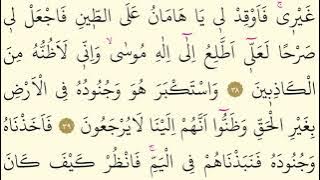 غَيْرِىۚ فَاَوْقِدْ لِى يَا هَامَانُ عَلَى الطّ۪ينِ فَاجْعَلْ لِى
صَرْحًا لَعَلّ۪ٓى اَطَّلِعُ اِلٰٓى اِلٰهِ مُوسٰىۙ وَاِنّ۪ى لَاَظُنُّهُ مِنَ
الْكَاذِب۪ينَ ٣٨ وَاسْتَكْبَرَ هُوَ وَجُنُودُهُ فِى الْاَرْضِ
بِغَيْرِ الْحَقِّ وَظَنُّٓوا اَنَّهُمْ اِلَيْنَا لَا يُرْجَعُونَ ٣٩ فَاَخَذْنَاهُ
وَجُنُودَهُ فَنَبَذْنَاهُمْ فِى الْيَمِّۚ فَانْظُرْ كَيْفَ كَانَ